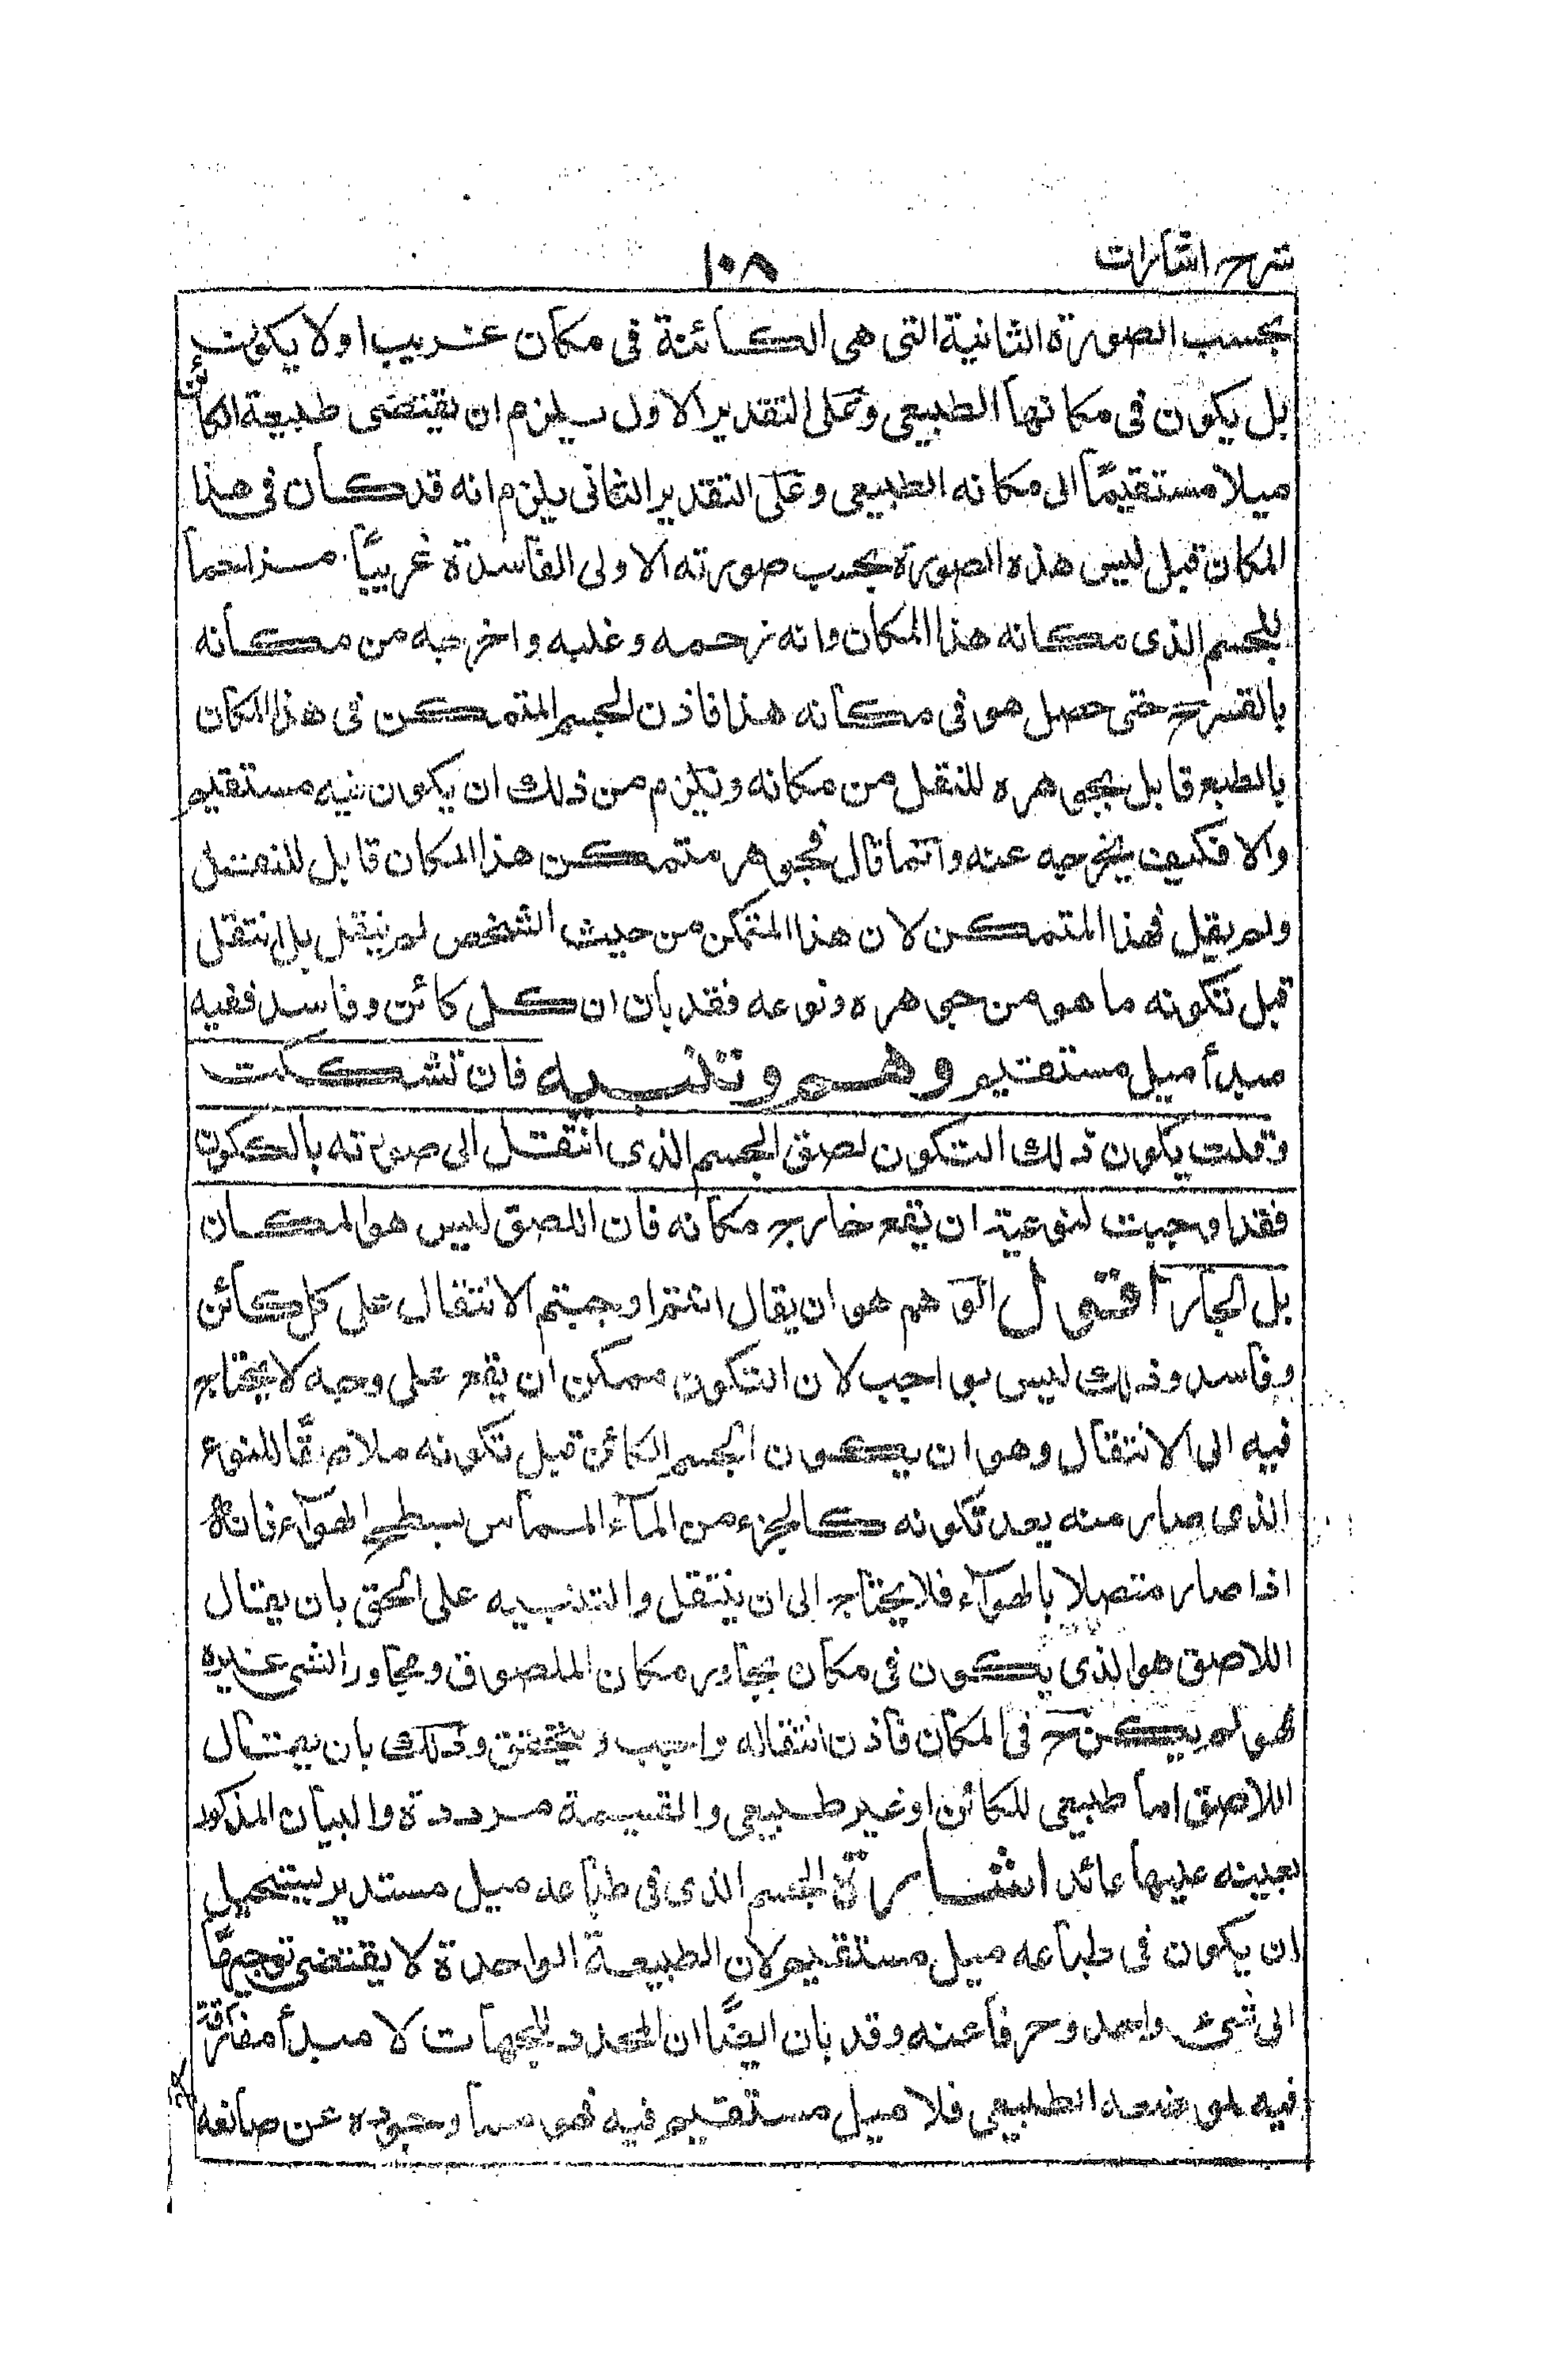 شرح اشارات
١٠٨
بحسب الصورة الثانية التى هى الكائنة فى مكان غريب اولا يكون
بل يكون فى مكانها الطبيعى وعلى التقدير الاول يلزم ان يقتضى طبيعة الكائن
ميلا مستقيمًا الى مكانه الطبيعى وعلى التقدير الثانى يلزم انه قد كان فى هذا
المكان قبل لبس هذه الصورة بحسب صورته الاولى الفاسدة غريبًا مزاحما
للجسم الذى مكانه هذا المكان وانه زحمه وغلبه واخرجه من مكانه
بالقسر ح حتى حصل هو فى مكانه هذا فاذن الجسم المتمكن فى هذا المكان
بالطبع قابل بجوهره للنقل من مكانه ويلزم من ذلك ان يكون فيه مستقيم
والا فكيف يخرجه عنه وانما قال فجوهر متمكن هذا المكان قابل للنقل
ولم يقل فهذا المتمكن لان هذا المتمكن من حيث الشخص لم ينتقل بل انتقل
قبل تكونه ما هو من جوهره ونوعه فقد بان ان كل كائن وفاسد ففيه
مبدأ ميل مستقيم وهم وتنبيه فان تشككت
وقلت يكون ذلك التكون لصق الجسم الذى انتقل الى صورته بالكون
فقد اوجبت لنوعية ان يقع خارج مكانه فان اللصق ليس هو المكان
بل الجار اقول الوهم هو ان يقال انتم اوجبتم الانتقال على كل كائن
وفاسد وذلك ليس بواجب لان التكون ممكن ان يقع على وجه لا يحتاج
فيه الى الانتقال وهو ان يكون الجسم الكائن قبل تكونه ملاصقًا للنوع
الذى صار منه بعد تكونه كالجزء من الماء المماس بسطح الهواء فانه
اذا صار متصلا بالهواء فلا يحتاج الى ان ينتقل والتنبيه على الحق بان يقال
اللاصق هو الذى يكون فى مكان يجاور مكان الملصوق ومجاور الشى غيره
فهو لم يكن ح فى المكان فاذن انتقاله واجب ويتحقق ذلك بان يقال
اللاصق اما طبيعى للكائن او غير طبيعى والقسمة مرددة والبيان المذكور
بعينه عليها عائد اشارة الجسم الذى فى طباعه ميل مستدير يستحيل
ان يكون فى طباعه ميل مستقيم لان الطبيعة الواحدة لا يقتضى توجيهًا
الى شئ واحد وصرفا عنه وقد بان ايضًا ان المحدد للجهات لا مبدأ مفارقة
فيه لموضعه الطبيعى فلا ميل مستقيم فيه فهو مما وجوده عن صانعه